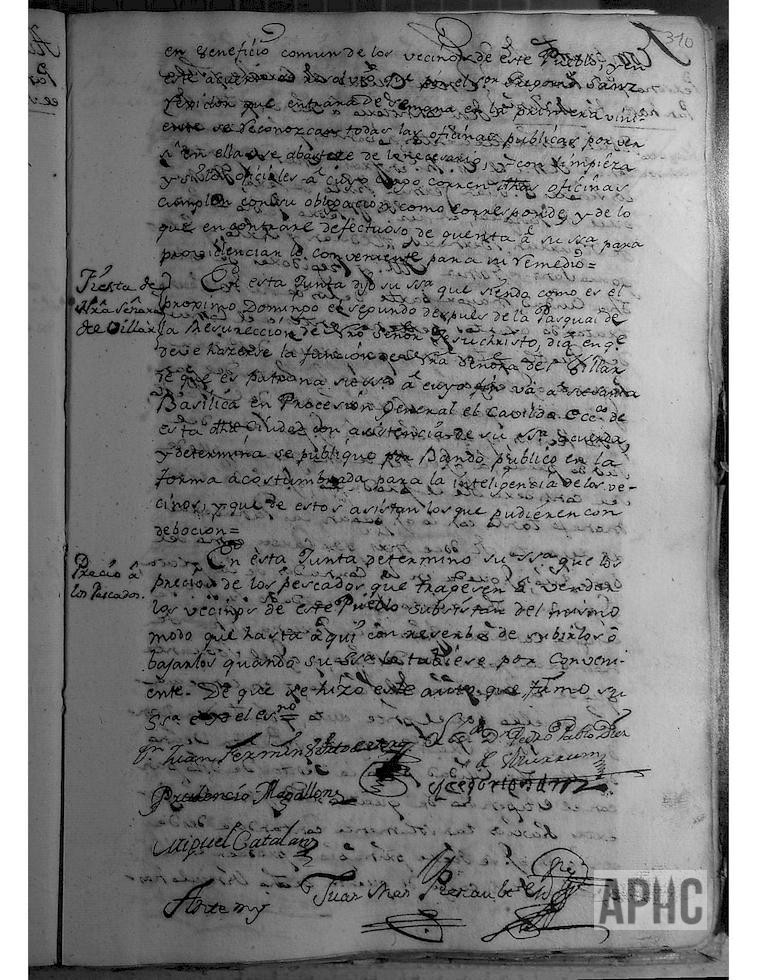 310
en veneficio comun de los vecinos de este Pueblo, y en
este por el Sor Gregorio Sanz
rexidor que entrara de semana en la primera vini-
ente se reconozcan todas las oficinas publicas por ver
si en ellas se abastece de lo necesario, y con limpieza
y si los oficiales a cuyo cargo corren dhas oficinas
cumplen con su obligacion como corresponde, y de lo
que encontrare defectuoso de quenta a su ssa para
providenciar lo conveniente para su remedio=
Fiesta de
Nra Señora
del Villar
En esta Junta dijo su ssa que siendo como es el
proximo Domingo el segundo despues de la Pasqua de
la Resurección de nro Señor Jesuchristo, dia en qe
deve hazerse la función de Nra Señora del Villar
que es patrona a cuyo fin va a
Basilica en Procesion General el Cavildo Eccco de
esta dha Ciudad con asistencia de su ssa, acuerda,
y determina se publique por Bando publico en la
forma acostumbrada para la inteligencia de los ve-
cinos, y que de estos asistan los que pudieren con
debocion=
Precio â
los Pescados.
En esta Junta determino su ssa que los
precios de los pescados que trageren a vender
los vecinos de este Pueblo subsistan del mismo
modo que hasta aqui con reserba de subirlos ô
bajarlos quando su ssa lo tubiese por conveni-
ente. De que se hizo este auto que firmo su
Ssa e yo el esno=
Juan Fermin
Dn Pedro Pablo
Prudencio Magallon
Gregorio Sanz
Miguel Catalan
Antemy Juan
APHC